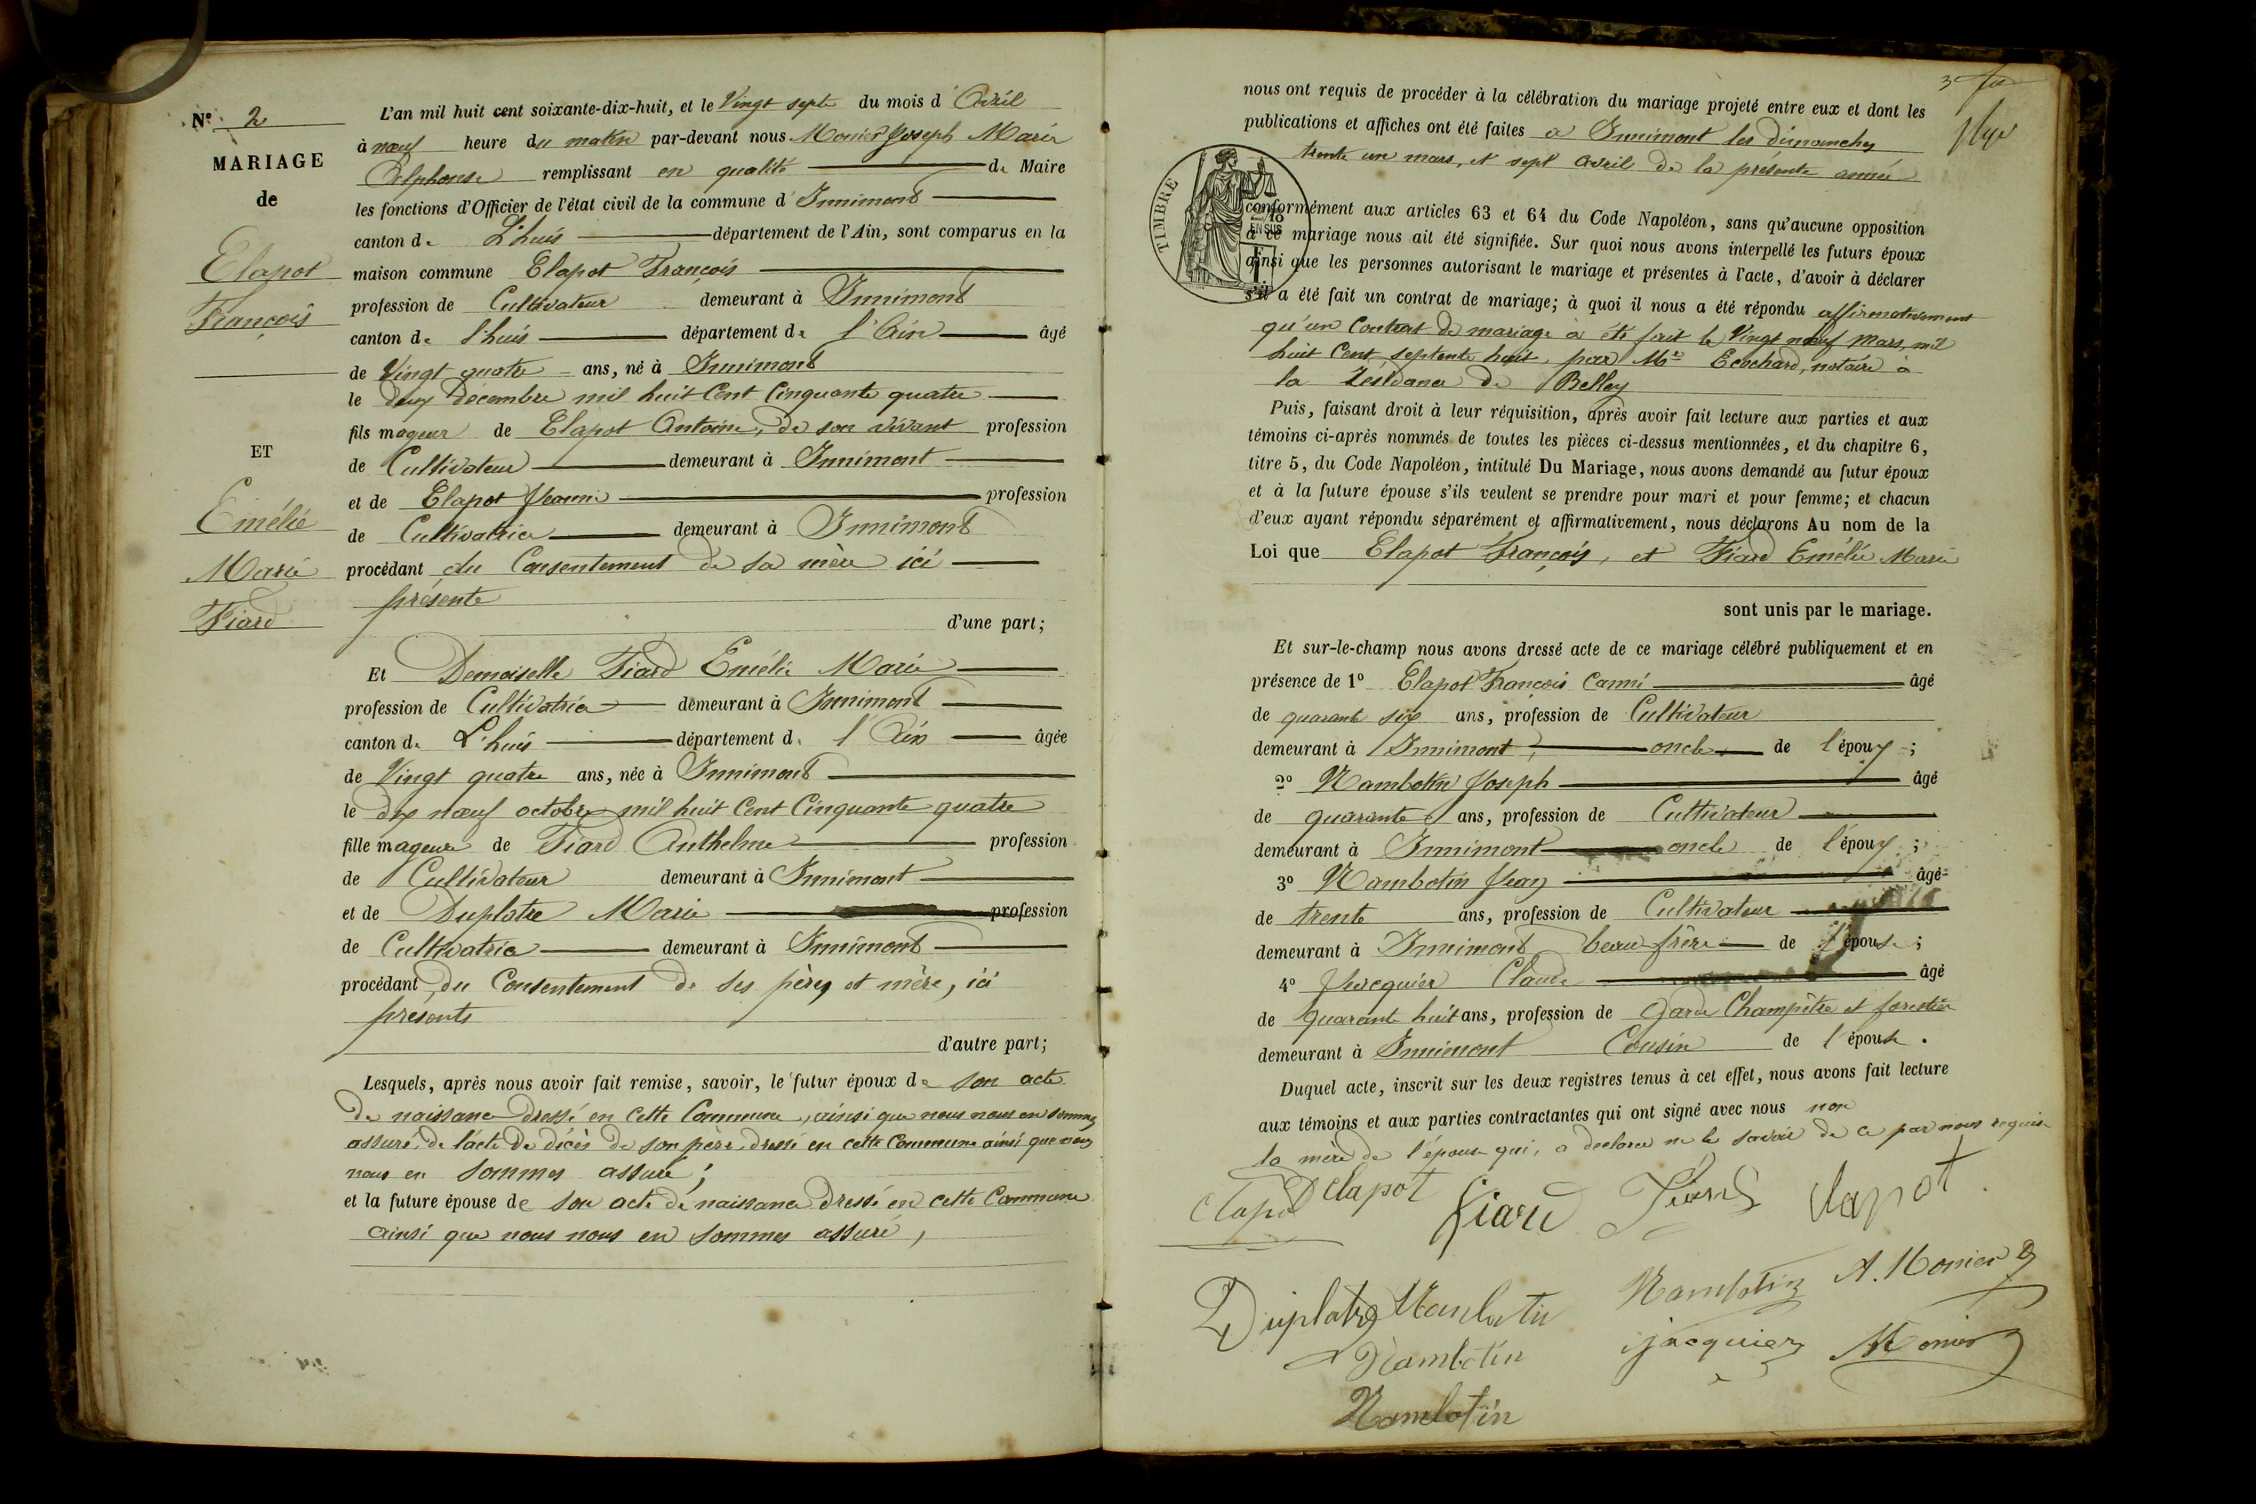 N° 2
MARIAGE
de
Clapot
François
ET
Emélie
Marie
Fiard
L'an mil huit cent soixante-dix-huit, et le Vingt sept du mois d'Avril
à neuf heure du matin par-devant nous Monier Joseph Marie
Delphonse remplissant en qualité de Maire
les fonctions d'Officier de l'état civil de la commune d'Innimont
canton de L'huis département de l'Ain, sont comparus en la
maison commune Clapot François
profession de Cultivateur demeurant à Innimont
canton de l'huis département de l'Ain âgé
de Vingt quatre ans, né à Innimont
le deux décembre mil huit Cent Cinquante quatre
fils mageur de Clapot Antoine, de son vivant profession
de Cultivateur demeurant à Innimont
et de Clapot Jeanne profession
de Cultivatrice demeurant à Innimont
procédant du Consentement de sa mère ici
présente
d'une part;
Et Demoiselle Fiard Emélie Marie
profession de Cultivatrice demeurant à Innimont
canton de L'huis département de l'Ain âgée
de Vingt quatre ans, née à Innimont
le dix neuf octobre mil huit Cent Cinquante quatre
fille mageure de Fiard Anthelme profession
de Cultivateur demeurant à Innimont
et de Duplatre Marie profession
de Cultivatrice demeurant à Innimont
procédant du Consentement de ses père et mère, ici
présents
d'autre part;
Lesquels, après nous avoir fait remise, savoir, le futur époux de son acte
de naissance dressé en cette Commune, ainsi que nous nous en sommes
assuré, de l'acte de décès de son père dressé en cette Commune ainsi que nous
nous en sommes assuré;
et la future épouse de son acte de naissance dressé en cette Commune
ainsi que nous nous en sommes assuré,
nous ont requis de procéder à la célébration du mariage projeté entre eux et dont les
publications et affiches ont été faites à Innimont les dimanches
trente un mars, et sept avril de la présente année
TIMBRE
2/10
EN SUS
conformément aux articles 63 et 64 du Code Napoléon, sans qu'aucune opposition
à ce mariage nous ait été signifiée. Sur quoi nous avons interpellé les futurs époux
ainsi que les personnes autorisant le mariage et présentes à l'acte, d'avoir à déclarer
s'il a été fait un contrat de mariage; à quoi il nous a été répondu affirmativement
qu'un Contrat de mariage a été fait le Vingt neuf mars, mil
huit Cent septente huit, par Me Ecochard, notaire à
la résidance de Belley
Puis, faisant droit à leur réquisition, après avoir fait lecture aux parties et aux
témoins ci-après nommés de toutes les pièces ci-dessus mentionnées, et du chapitre 6,
titre 5, du Code Napoléon, intitulé Du Mariage, nous avons demandé au futur époux
et à la future épouse s'ils veulent se prendre pour mari et pour femme; et chacun
d'eux ayant répondu séparément et affirmativement, nous déclarons Au nom de la
Loi que Clapot François, et Fiard Emélie Marie
sont unis par le mariage.
Et sur-le-champ nous avons dressé acte de ce mariage célébré publiquement et en
présence de 1° Clapot François Canni âgé
de quarante six ans, profession de Cultivateur
demeurant à Innimont, oncle de l'époux;
2° Nambotin Joseph âgé
de quarante ans, profession de Cultivateur
demeurant à Innimont oncle de l'époux;
3° Nambotin Jean âgé
de trente ans, profession de Cultivateur
demeurant à Innimont beau-frère de l'épouse;
4° Jacquier Claude âgé
de quarante huit ans, profession de Garde Champêtre et forestier
demeurant à Innimont Cousin de l'épouse.
Duquel acte, inscrit sur les deux registres tenus à cet effet, nous avons fait lecture
aux témoins et aux parties contractantes qui ont signé avec nous non
la mère de l'épouse qui, a declaree ne le savoir de ce par nous requise
Clapot Clapot Fiard Fiard Clapot
Duplatre Nambotin Nambotin A. Monier
Nambotin jacquier Monier
Nambotin